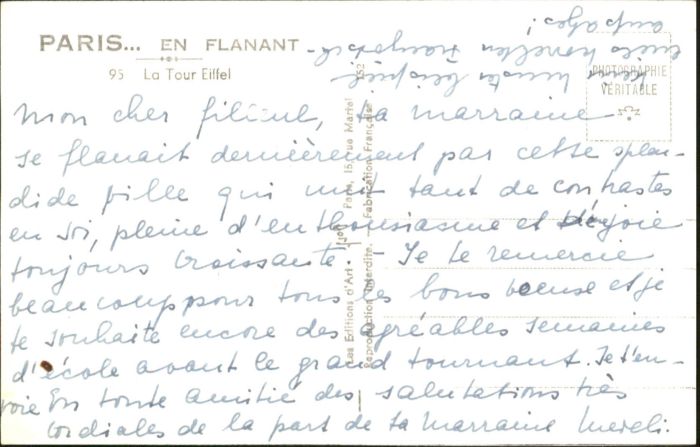 PARIS... EN FLANANT
95 La Tour Eiffel
PHOTOGRAPHIE
VÉRITABLE
Mon cher filieul, ta marraine
se flanait dernièrement par cette splen-
dide ville qui unit tant de contrastes
en soi, pleine d'enthousiasme et de joie
toujours croissante - Je te remercie
beaucoup pour tous les bons et je
te souhaite encore des agréables semaines
d'école avant le grand tournant. Je t'en-
voie En toute amitié des salutations très
cordiales de la part de ta marraine Mereli.
Les Editions d'Art "Yvon" Paris, 15, rue Martel 152
Reproduction interdite. - Fabrication Française